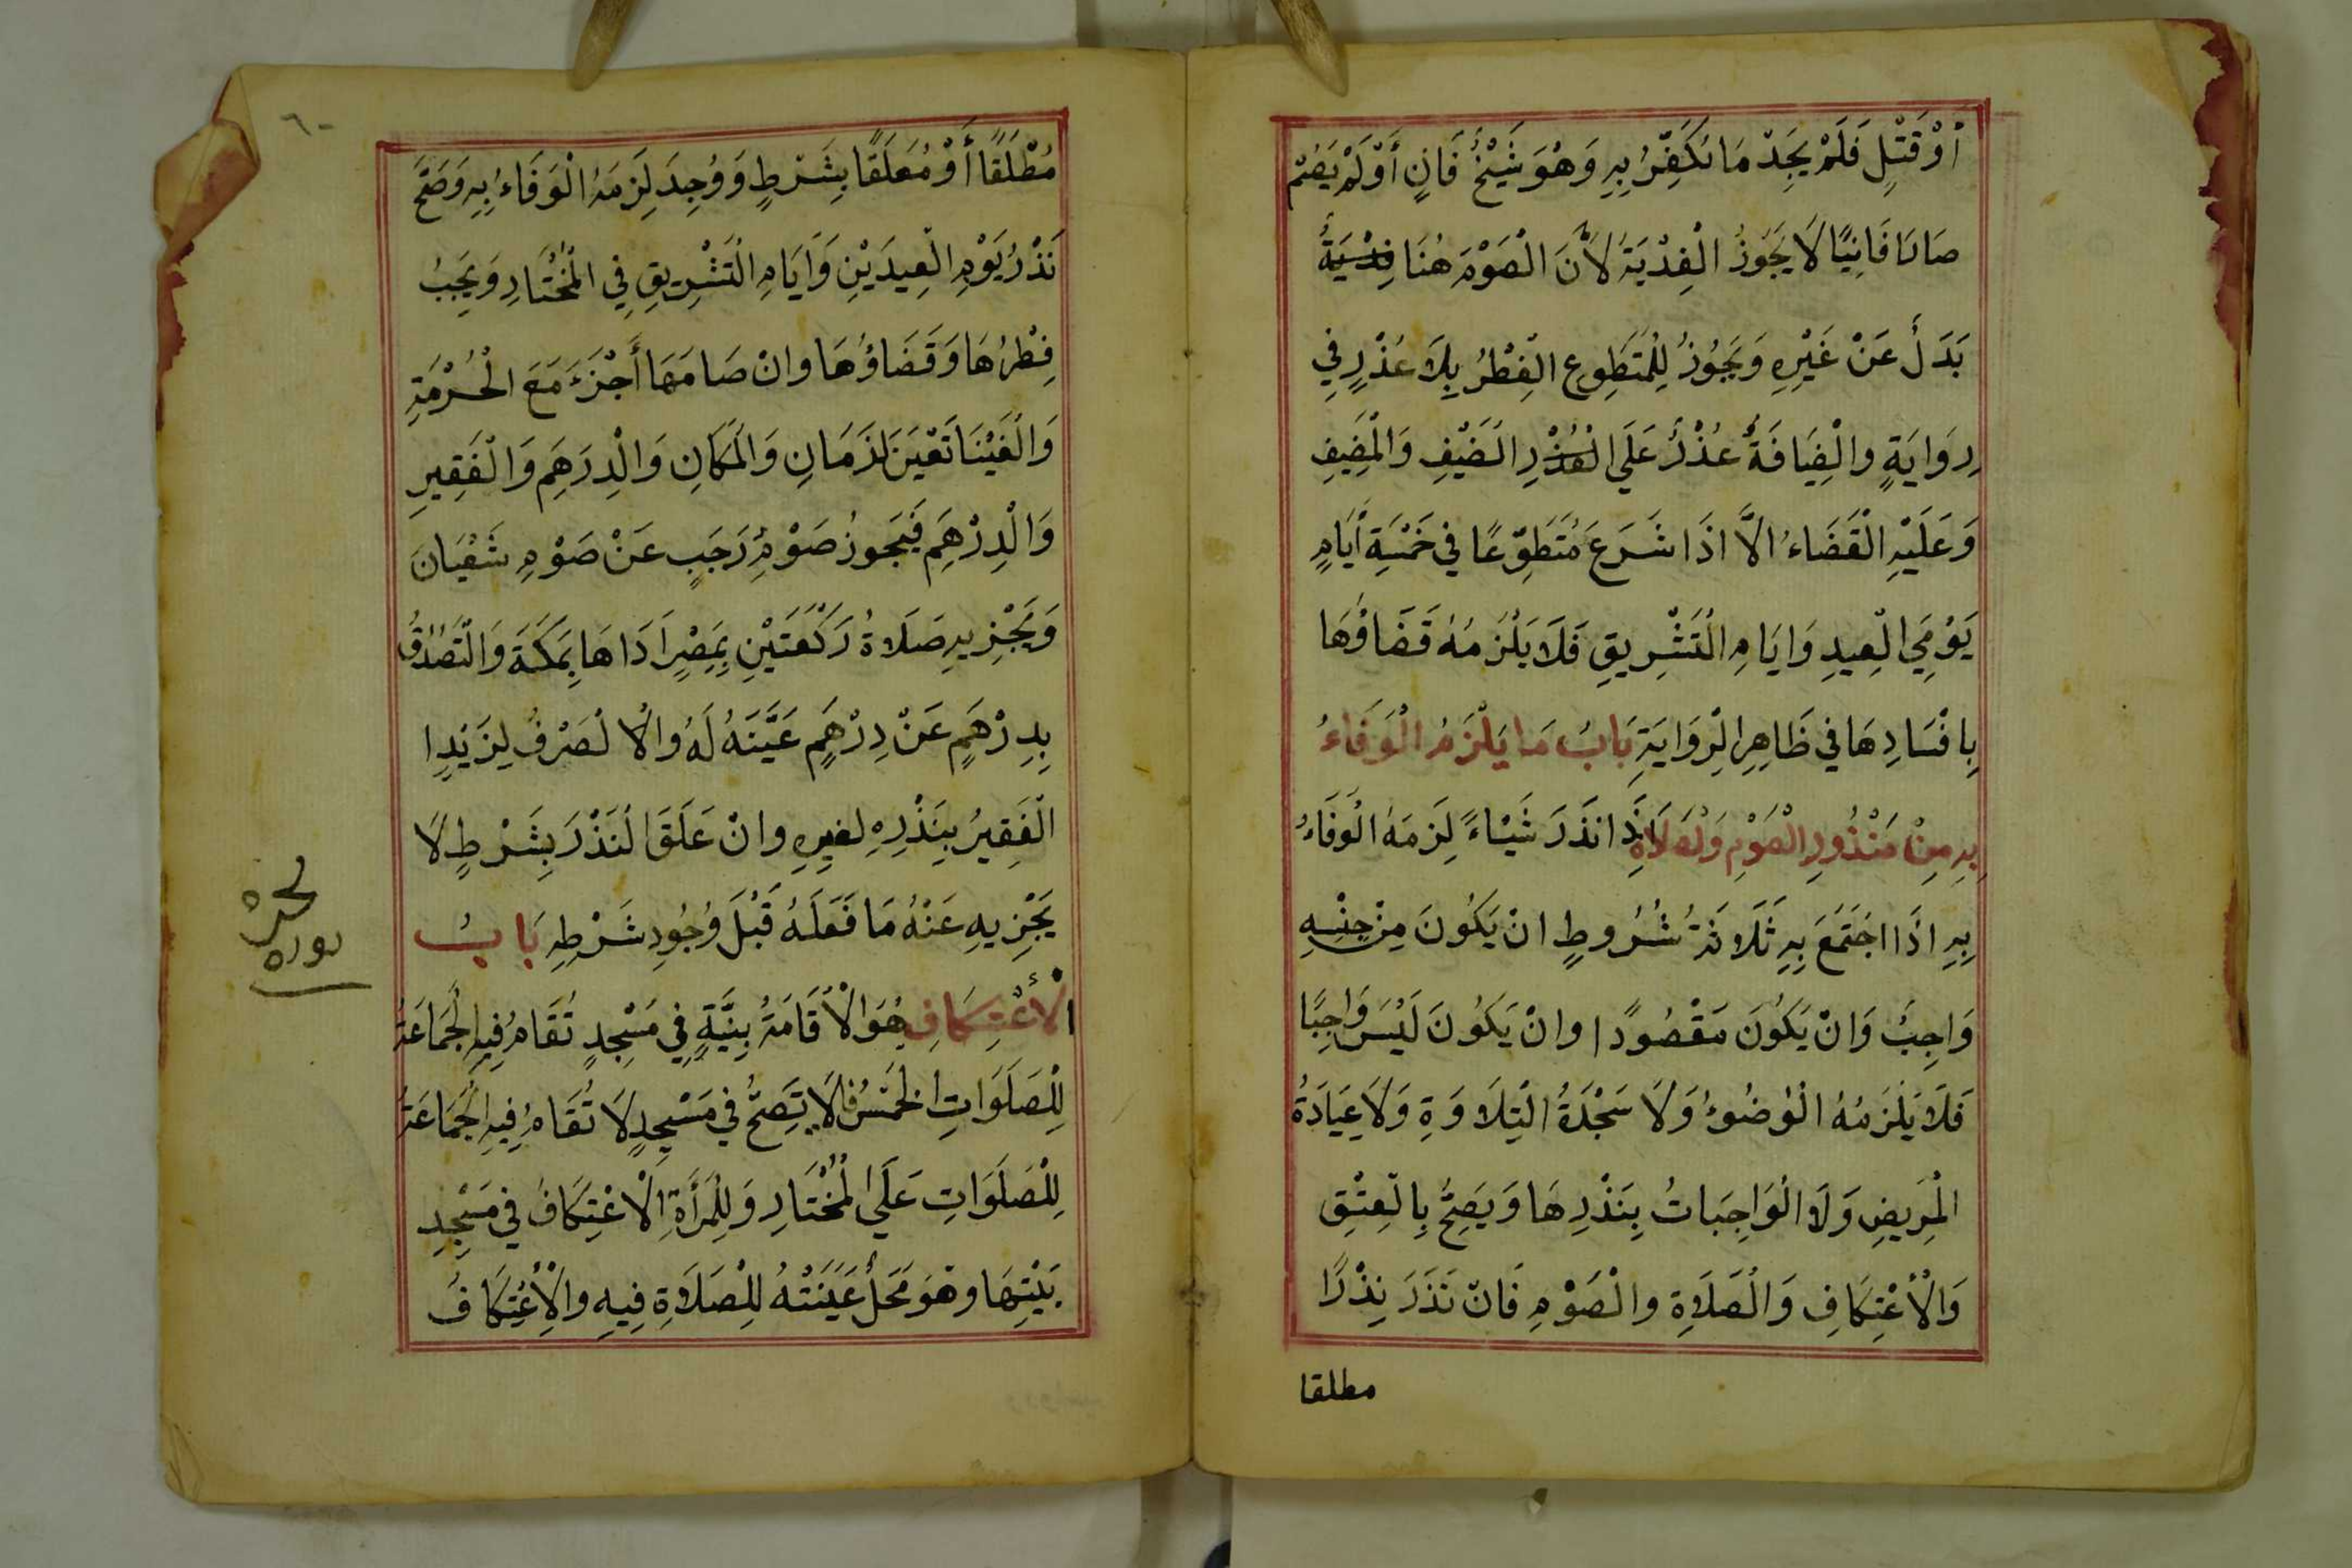 أَوْ قَتْلٍ فَلَمْ يَجِدْ مَا يُكَفِّرُ بِهِ وَهُوَ شَيْخٌ فَانٍ أَوْ لَمْ يَصُمْ
فَانِيًا لَا يَجُوزُ الْفِدْيَةُ لَأَنَّ الْصَوْمَ هُنَا
بَدَلٌ عَنْ غَيْرِهِ وَيَجُوزُ لِلْمُتَطَوِعِ الفِطْرُ بِلَا عُذْرٍ فِي
رِوَايَةٍ والْضِيَافَةُ عُذْرٌ عَلَي الْضَيْفِ وَالْمُضِيفِ
وَعَلَيْهِ الْقَضَاءُ الَّا اذَا شَرَعَ مُتَطَوِّعًا فِي خَمْسَةِ أَيَامٍ
يَوْمِيَ الْعِيدِ وَايَامِ الْتَشْرِيقِ فَلَا يَلْزَمُهُ قَضَاؤُهَا
بِافْسَادِهَا فِي ظَاهِرِ الْرِوَايَةِ بَابُ مَا يَلْزَمُ الْوَفَاءُ
بِهِ مِنْ مَنْذُورِ الْصَوْمِ وَلْصَلَاةِ اذَا نَذَرَ شَيْاءً لَزِمَهُ الْوَفَاءُ
بِهِ اذَا اجْتَمَعَ بِهِ ثَلَاثَةُ شُرُوطٍ انْ يَكُونَ مِنْ جِنْسِهِ
وَاجِبٌ وَانْ يَكُونَ مَقْصُودًا وانْ يَكُونَ لَيْسَ وَاجِبًا
فَلَا يَلْزَمُهُ الْوُضُوءُ وَلَا سَجْدَةُ الْتِلَاوَةِ وَلَا عِيَادَةُ
الْمَرِيضِ وَلَا الْوَاجِبَاتُ بِنَذْرِهَا وَيَصِحُّ بِالْعِتْقِ
وَالْأعْتِكَافِ وَالْصَلَاةِ والْصَوْمِ فَانْ نَذَرَ نَذْرًا
مطلقا
٦٠
مُطْلَقًا أَوْ مُعَلَقًا بِشَرْطٍ وَوُجِدَ لَزِمَهُ الْوَفَاءُ بِهِ وَصَحَّ
نَذْرُ يَوْمِ الْعِيدَيْنِ وَايَامِ الْتَشْرِيقِ فِي الْمُخْتَارِ وَيَجِبُ
فِطْرُهَا وَقَضَاؤُهَا وانْ صَامَهَا أَجْزَءَ مَعَ الْحُرْمَةِ
وَالْغَيْنَا تَعْيَنَ لزَمَانِ وَالْمَكَانِ وَالْدِرَهِمِ وَالْفَقِيرِ
وَالْدِرْهَمِ فَيَجوزُ صَوْمُ رَجَبٍ عَنْ صَوْمِ شَعْبَانَ
وَيَجْزِيهِ صَلَاةُ رَكْعَتَيْنِ بِمِصْرٍ ادَاهَا بِمَكَةَ وَالْتَصَدُقُ
بِدِرْهَمٍ عَنْ دِرْهَمٍ عَيَّنَهُ لَهُ والْا لْصَرْفُ لِزَيْدٍ ا
الْفَقِيرُ بِنَذْرِهِ لغيرِهِ وانْ عَلَقَ الْنَذْرَ بِشَرْطٍ لَا
يَجْزِيهِ عَنْهُ مَا فَعَلَهُ قَبْلَ وُجُودِ شَرْطِهِ بَابُ
الْأعْتِكَافِ هُوَ الْاقَامَةُ بِنِيَّةٍ فِي مَسْجِدٍ تُقَامُ فِيهِ الْجَمَاعَةُ
لِلْصَلَوَاتِ الْخَمْسُ فلَا تَصِحُّ فِي مَسْجِدٍ لَا تُقَامُ فِيهِ الْجَمَاعَةُ
لِلْصَلَوَاتِ عَلَى الْمُخْتَارِ وَلِلْمَرْأَةِ الْاعْتِكَافُ فِي مَسْجِدِ
بَيْتِهَا وهُوَ مَحَلٌ عَيَنَتْهُ لِلْصَلَاةِ فِيهِ والْأعْتِكَافُ